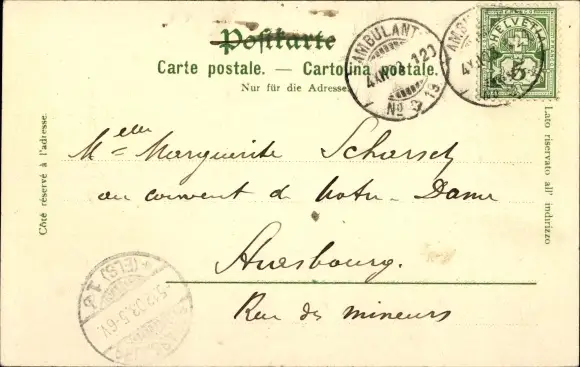 Postkarte
Carte postale. — Cartolina postale.
Nur für die Adresse.
AMBULANT
No
HELVETIA
5
Côté réservé à l'adresse.
Lato riservato all' indirizzo
Melle Marguerite
au couvent de Notre-Dame
Strasbourg.
Rue des mineurs
(ELS)
5.12.02.5-6V.